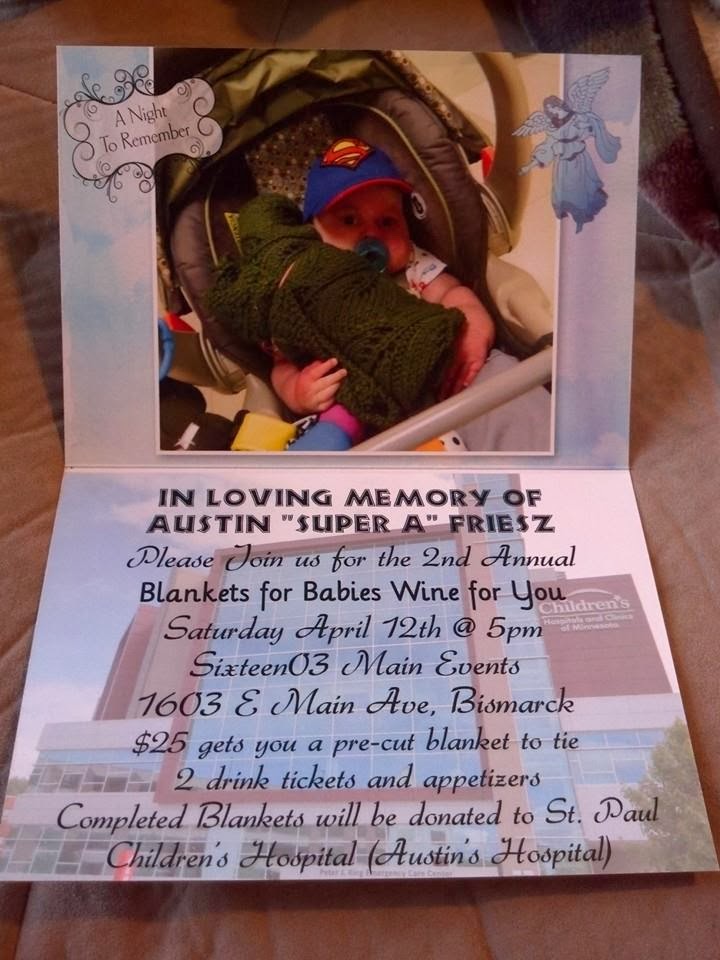 A Night
To Remember
IN LOVING MEMORY OF
AUSTIN "SUPER A" FRIESZ
Please Join us for the 2nd Annual
Blankets for Babies Wine for You
Saturday April 12th @ 5pm
Sixteen03 Main Events
1603 E Main Ave, Bismarck
$25 gets you a pre-cut blanket to tie
2 drink tickets and appetizers
Completed Blankets will be donated to St. Paul
Children's Hospital (Austin's Hospital)
Children's
Hospitals and Clinics
of Minnesota
Peter J. King Emergency Care Center